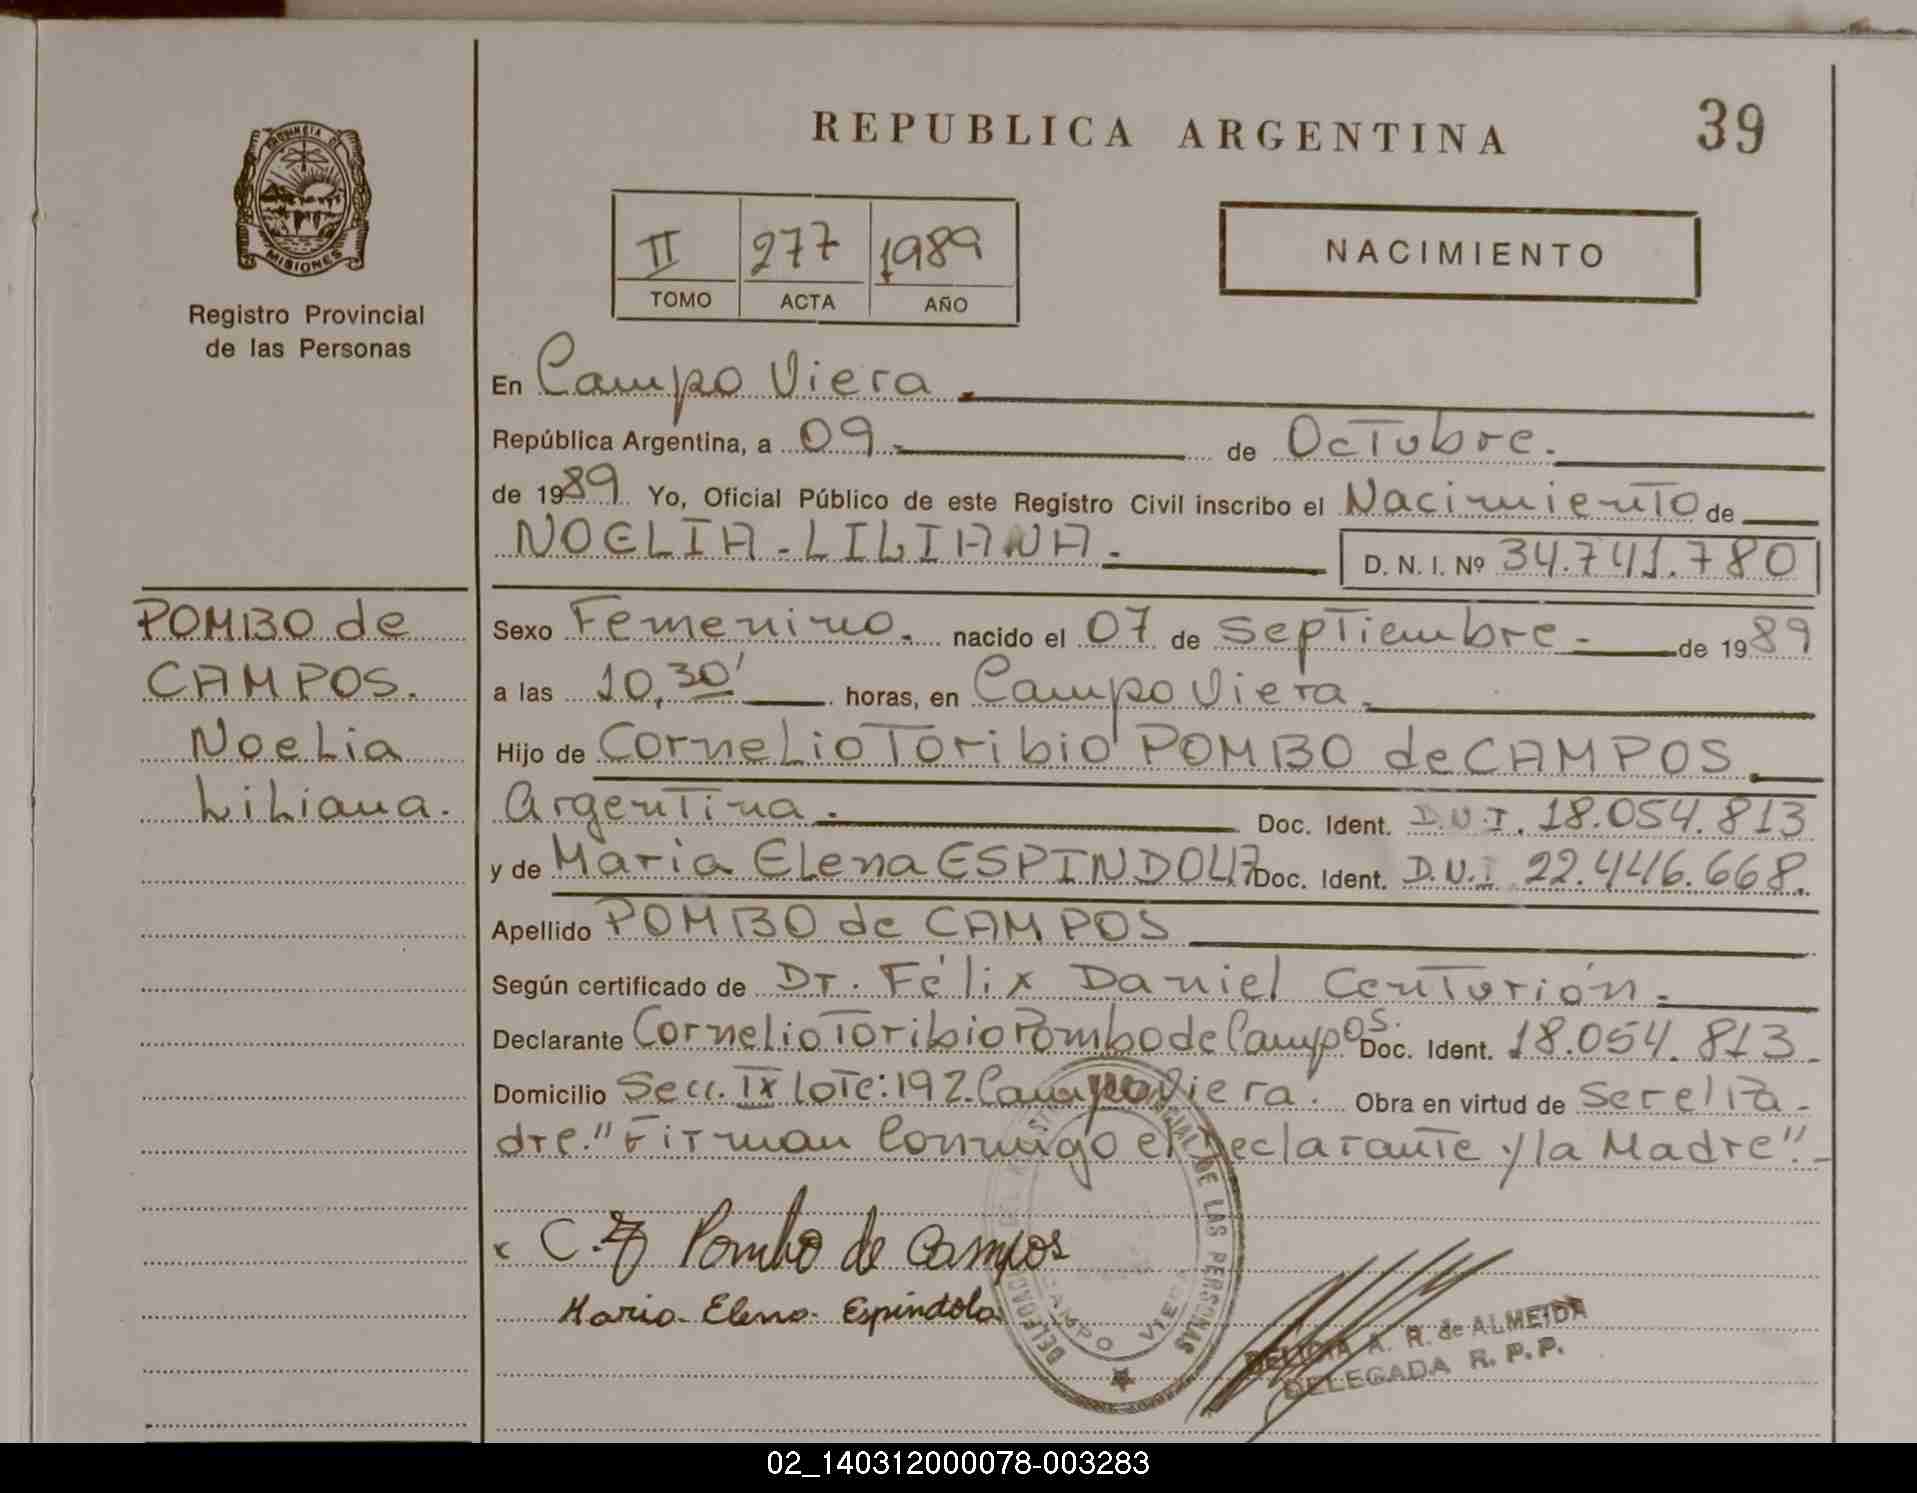 REPUBLICA ARGENTINA
39
PROVINCIA DE
MISIONES
Registro Provincial
de las Personas
II 277 1989
TOMO ACTA AÑO
NACIMIENTO
En Campo Viera.
República Argentina, a 09.- de Octubre.
de 1989 Yo, Oficial Público de este Registro Civil inscribo el Nacimiento de
NOELIA-LILIANA.
D. N. I. Nº 34.741.780
POMBO de
CAMPOS.
Noelia
Liliana.
Sexo Femenino. nacido el 07 de septiembre.- de 1989
a las 10,30' horas, en Campo Viera.
Hijo de Cornelio Toribio POMBO de CAMPOS.
Argentina. Doc. Ident. D.N.I. 18.054.813
y de Maria Elena ESPINDOLA Doc. Ident. D.N.I 22.446.668.
Apellido POMBO de CAMPOS
Según certificado de Dr. Félix Daniel Centurión.-
Declarante Cornelio Toribio Pombo de Campos. Doc. Ident. 18.054.813-
Domicilio Secc. IX lote: 192. Campo Viera. Obra en virtud de ser el Pa-
dre. "Firman Conmigo el Declarante y la Madre".-
x C. T Pombo de Campos
Maria Elena Espindola
DE LAS PERSONAS
CAMPO VIERA
DELICIA A. R. de ALMEIDA
DELEGADA R. P. P.
02_140312000078-003283